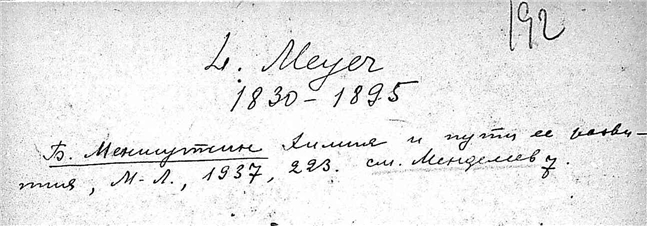 192
L. Meyer
1830-1895
Б. Меншуткин Химия и пути ее разви-
тия, М-Л., 1937, 223. см. Менделеев